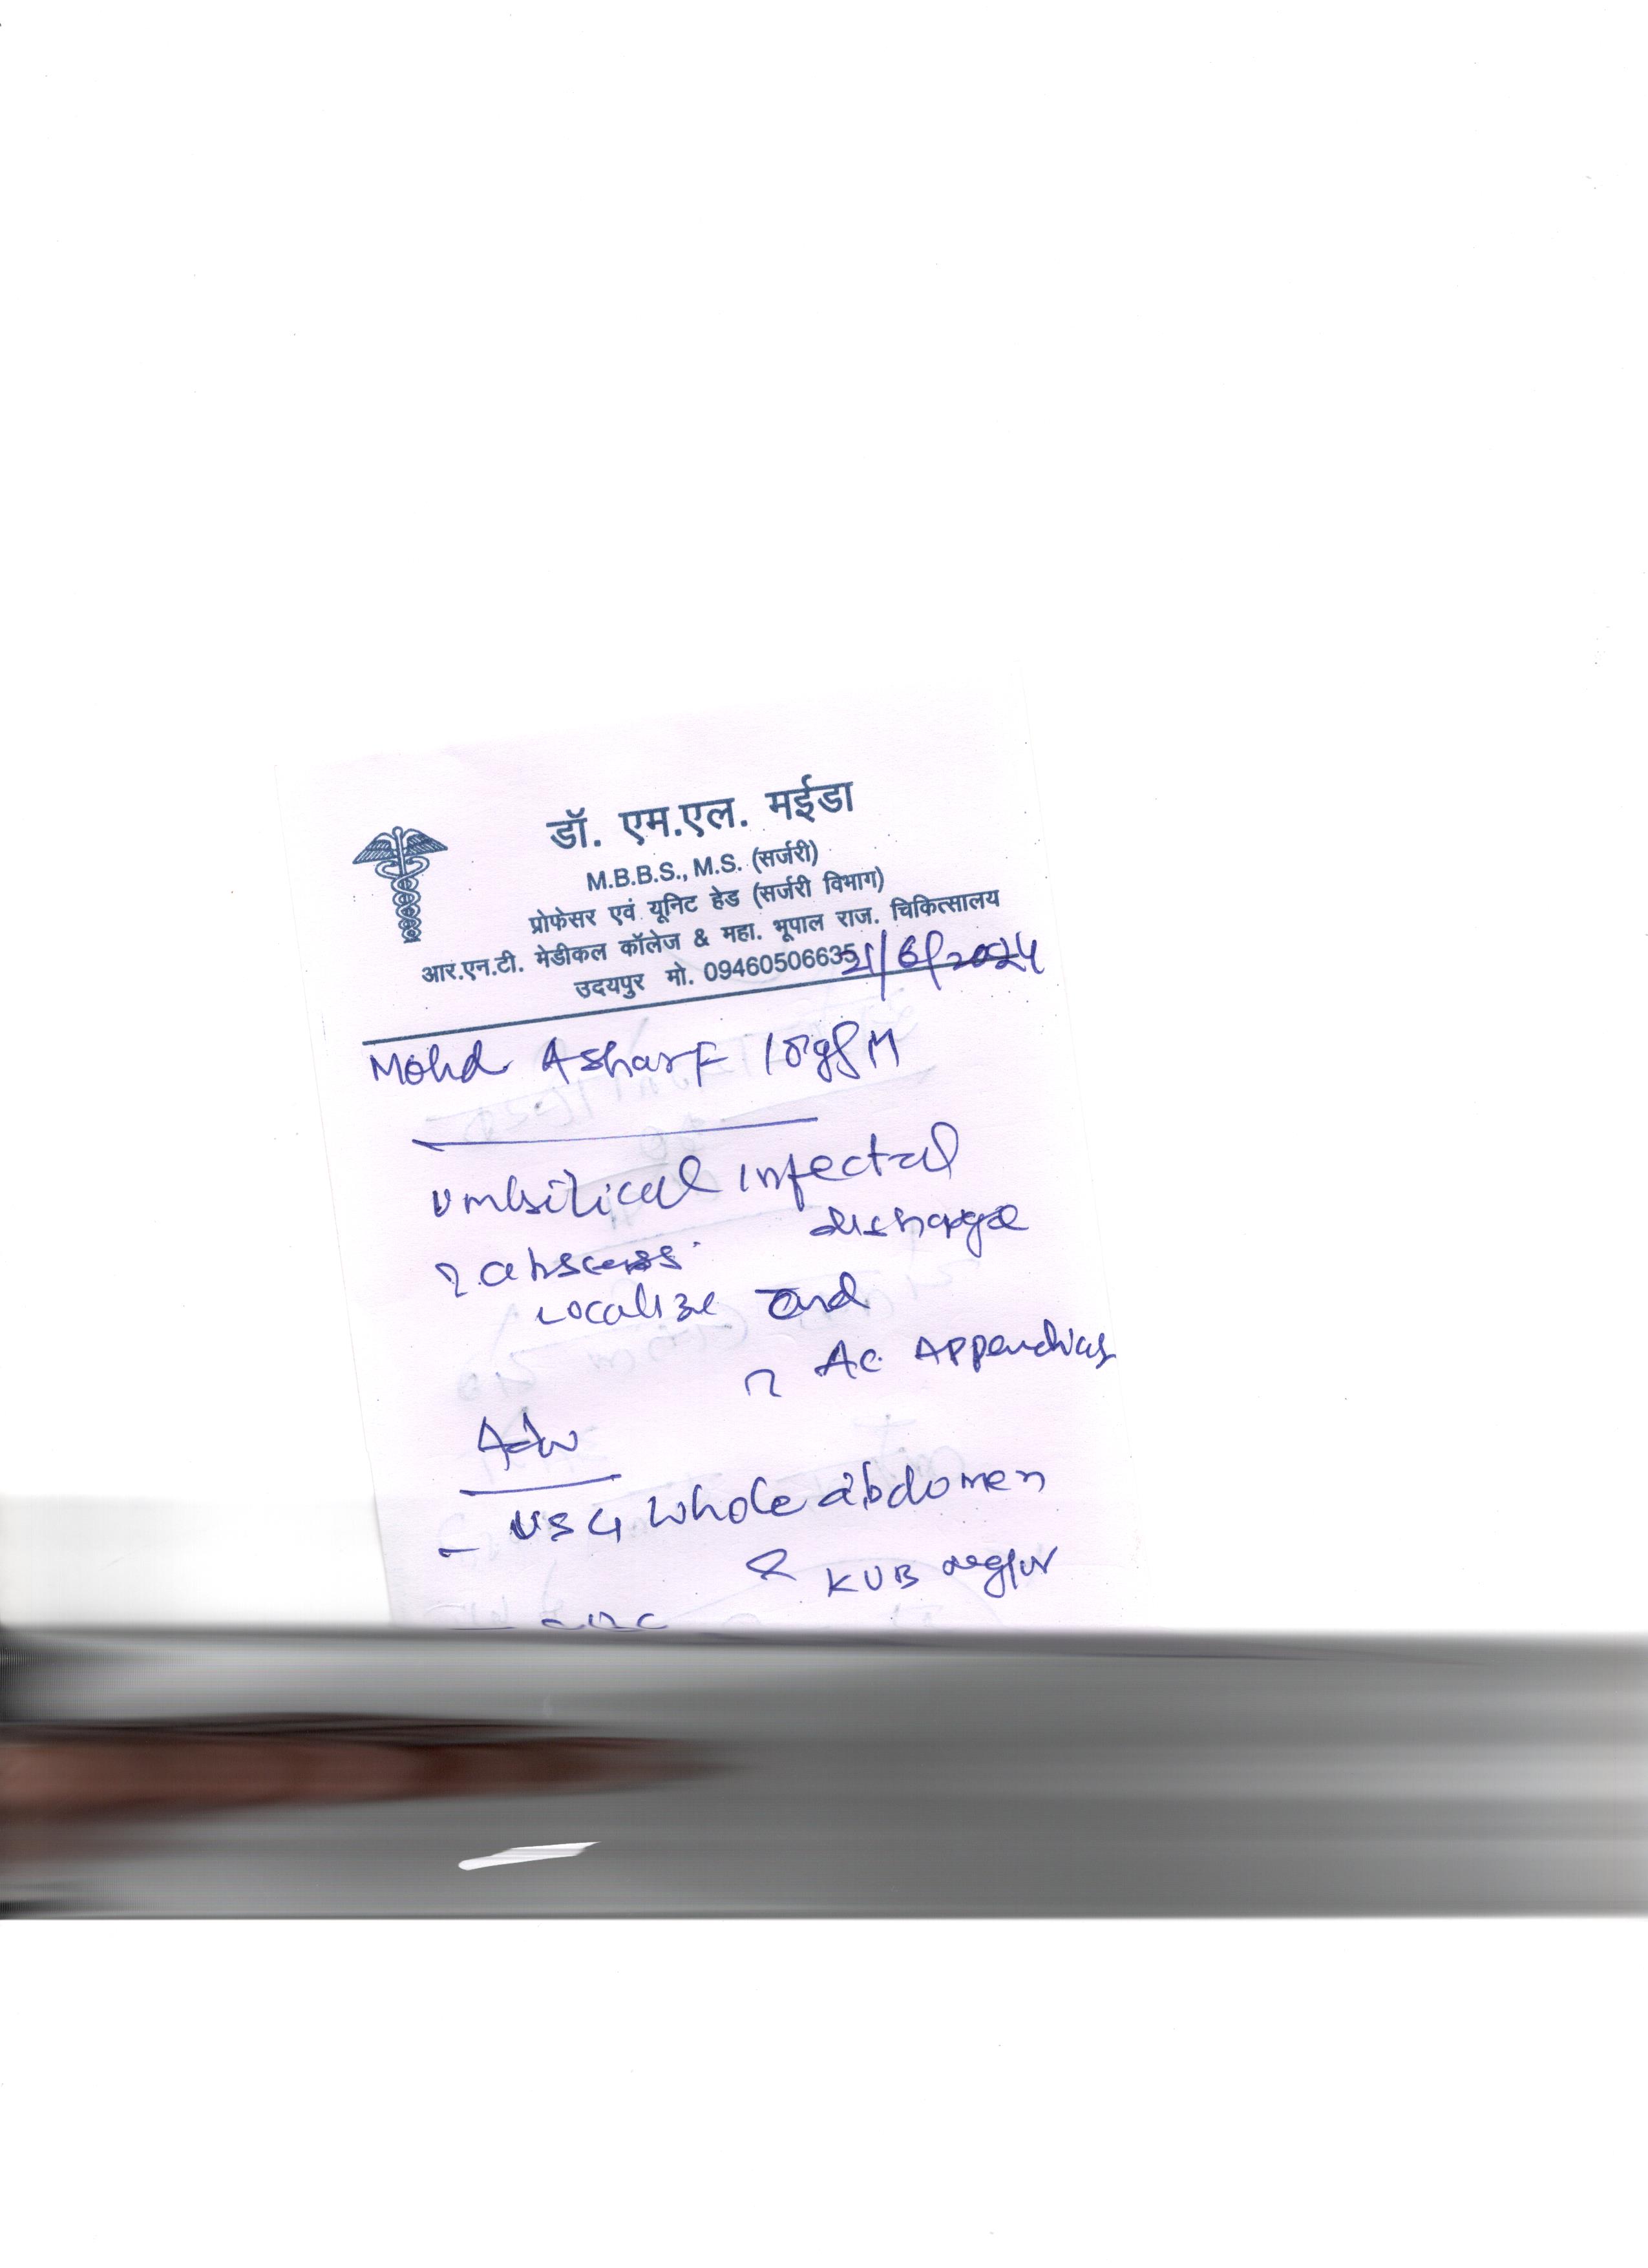 डॉ. एम.एल. मईडा
M.B.B.S., M.S. (सर्जरी)
प्रोफेसर एवं यूनिट हेड (सर्जरी विभाग)
आर.एन.टी. मेडीकल कॉलेज & महा. भूपाल राज. चिकित्सालय
उदयपुर मो. 09460506635
21/6/2024
Mohd Asharf M
Umbilical infected
discharge
? abscess
localize and
? Ac Appendicitis
Adv
- USG Whole abdomen
& KUB region